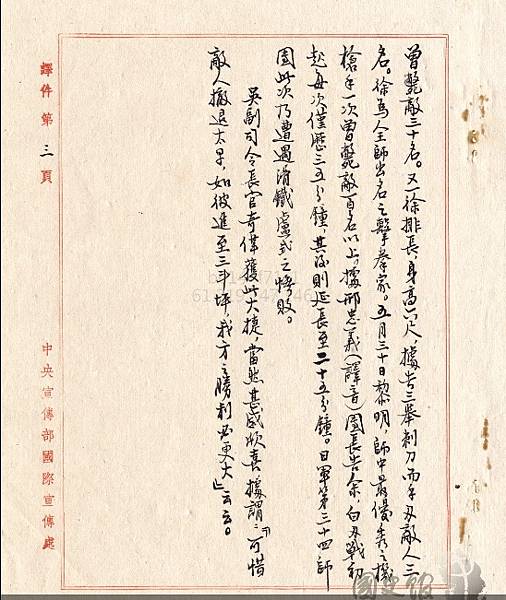 曾斃敵三十名。又一徐排長，身高六尺，據告三舉刺刀而手刃敵人三
名。徐為人王師出名之擊拳家。五月三十日黎明，師中最優秀之機
槍手一次曾斃敵百名以上，據邢忠義（譯音）團長告余，白刃戰初
起每次僅歷三五分鐘，其後則延長至二十五分鐘。日軍第三十四師
團此次乃遭遇滑鐵盧式之慘敗。
吳副司令長官奇偉獲此大捷，當然甚感欣喜，據謂：『可惜
敵人撤退太早，如彼進至三斗坪，我方之勝利必更大』云云。
譯件第三頁
中央宣傳部國際宣傳處
國史館